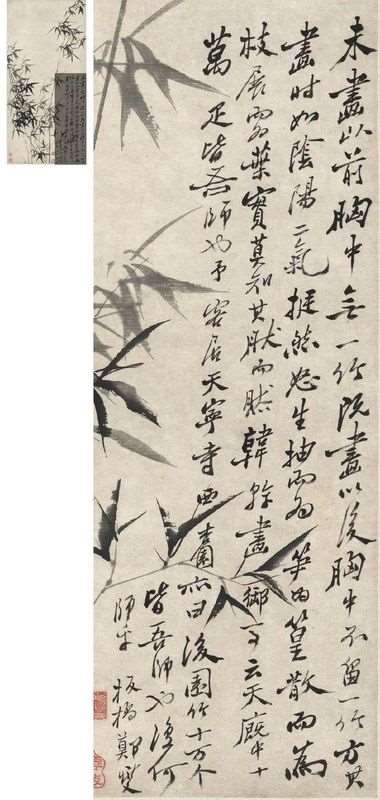 未畫以前胸中無一竹既畫以後胸中不留一竹方其
畫時如陰陽二氣挺然怒生抽而為笋為篁散而為
枝展而為葉實莫知其然而然韓幹畫御馬云天廐中十
萬疋皆吾師也予客居天寧寺西園亦曰後園竹十万个
皆吾師也復何
師乎板橋鄭燮